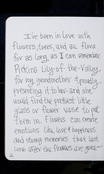 I've been in love with
flowers, trees, and all flora
for as long as I can remember.
Picking Lily-of-the-Valley
for my grandmother & proudly
presenting it to her and she
would find the prettiest little
glass or flower vase to put
them in. Flowers can create
emotions like love & happiness
and strong memories that last
long after the flowers are gone